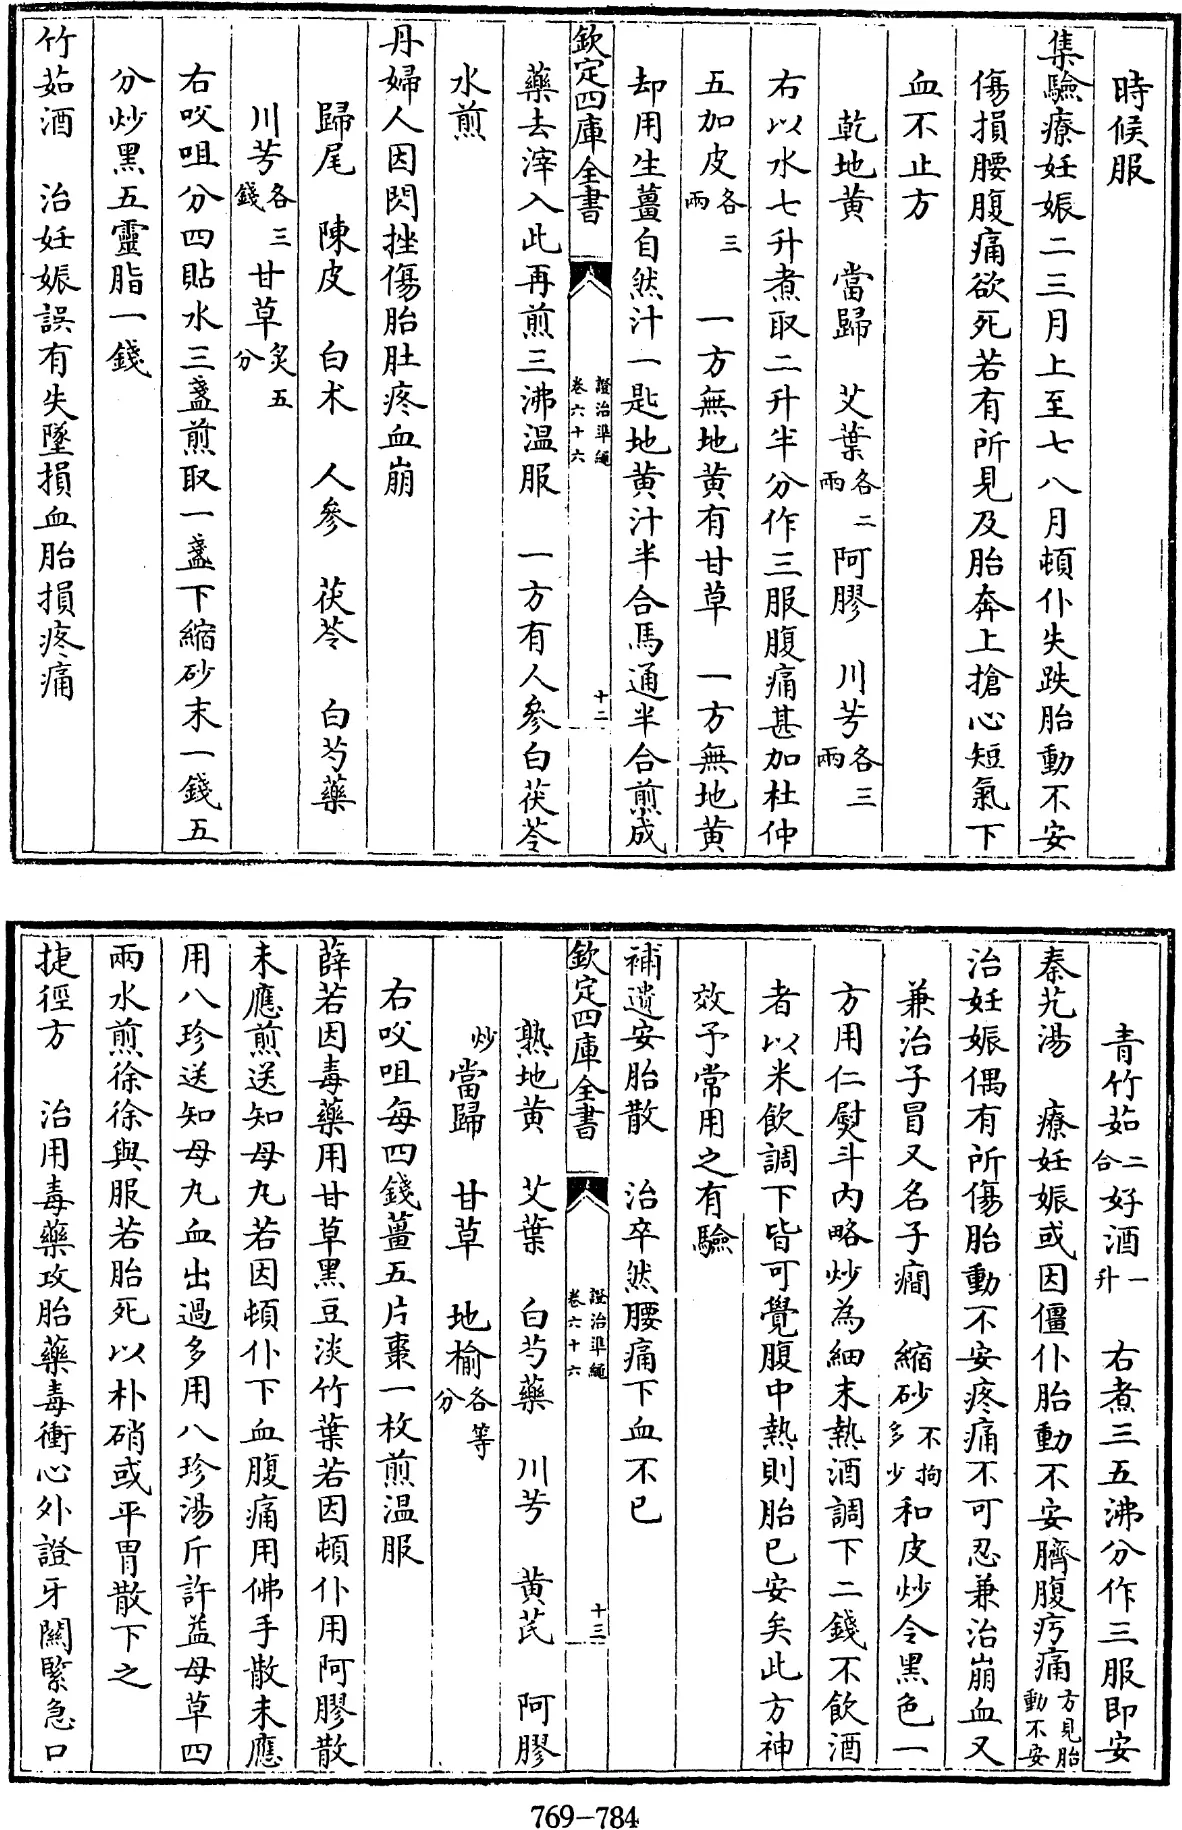 時候服
集驗療妊娠二三月上至七八月頓仆失跌胎動不安
傷損腰腹痛欲死若有所見及胎奔上搶心短氣下
血不止方
乾地黄　當歸　艾葉各二兩　阿膠　川芎各三兩
右以水七升煮取二升半分作三服腹痛甚加杜仲
五加皮各三兩　一方無地黄有甘草　一方無地黄
却用生薑自然汁一匙地黄汁半合馬通半合煎成
欽定四庫全書　證治準繩卷六十六　十二
藥去滓入此再煎三沸温服　一方有人參白茯苓
水煎
丹婦人因閃挫傷胎肚疼血崩
歸尾　陳皮　白术　人參　茯苓　白芍藥
川芎各三錢　甘草炙五分
右㕮咀分四貼水三盞煎取一盞下縮砂末一錢五
分炒黑五靈脂一錢
竹茹酒　治妊娠誤有失墜損血胎損疼痛
青竹茹二合　好酒一升　右煮三五沸分作三服即安
秦艽湯　療妊娠或因僵仆胎動不安臍腹疞痛方見胎動不安
治妊娠偶有所傷胎動不安疼痛不可忍兼治崩血又
兼治子冒又名子癇　縮砂不拘多少　和皮炒令黑色一
方用仁熨斗内略炒為細末熱酒調下二錢不飲酒
者以米飲調下皆可覺腹中熱則胎已安矣此方神
效予常用之有驗
補遺安胎散　治卒然腰痛下血不已
欽定四庫全書　證治準繩卷六十六　十三
熟地黄　艾葉　白芍藥　川芎　黄芪　阿膠
炒　當歸　甘草　地榆各等分
右㕮咀每四錢薑五片棗一枚煎温服
薛若因毒藥用甘草黑豆淡竹葉若因頓仆用阿膠散
未應煎送知母丸若因頓仆下血腹痛用佛手散未應
用八珍送知母丸血出過多用八珍湯斤許益母草四
兩水煎徐徐與服若胎死以朴硝或平胃散下之
捷徑方　治用毒藥攻胎藥毒衝心外證牙關緊急口
769-784